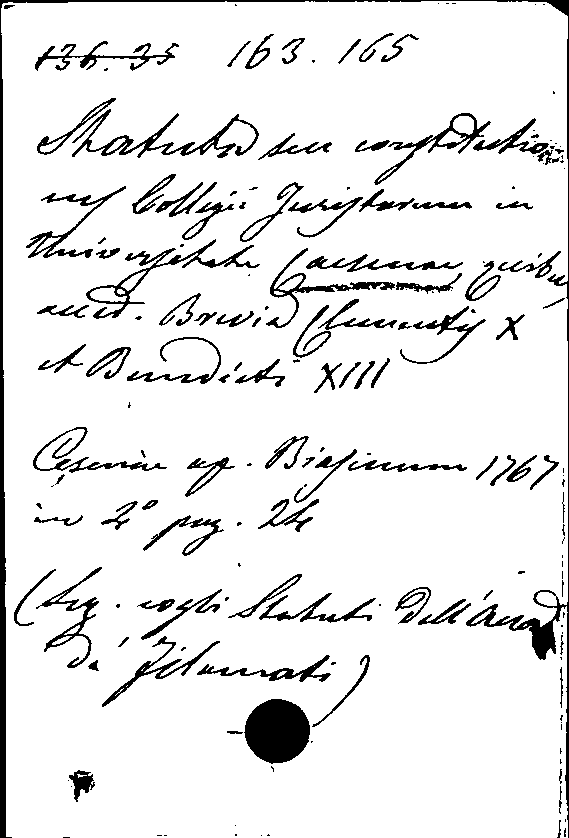 136. 35 163. 165
Statuta seu constitutio
nes Collegii Juristarum in
Universitate Caesenae, quibus
acced. Brevia Clementis X
et Benedicti XIII
Cesenae ap. Biasinum 1767
in 4° pag. 24
(Leg. cogli Statuti dell'Accad
de' Filomati)